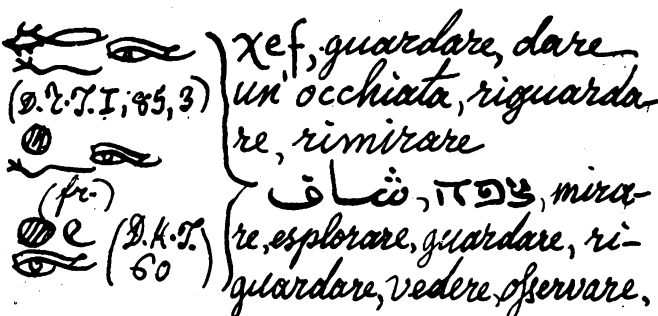 85, 3)
(fr.)
60)
χef, guardare, dare
un' occhiata, riguarda-
re, rimirare
شاف, צפה, mira-
re, esplorare, guardare, ri-
guardare, vedere, oſservare,